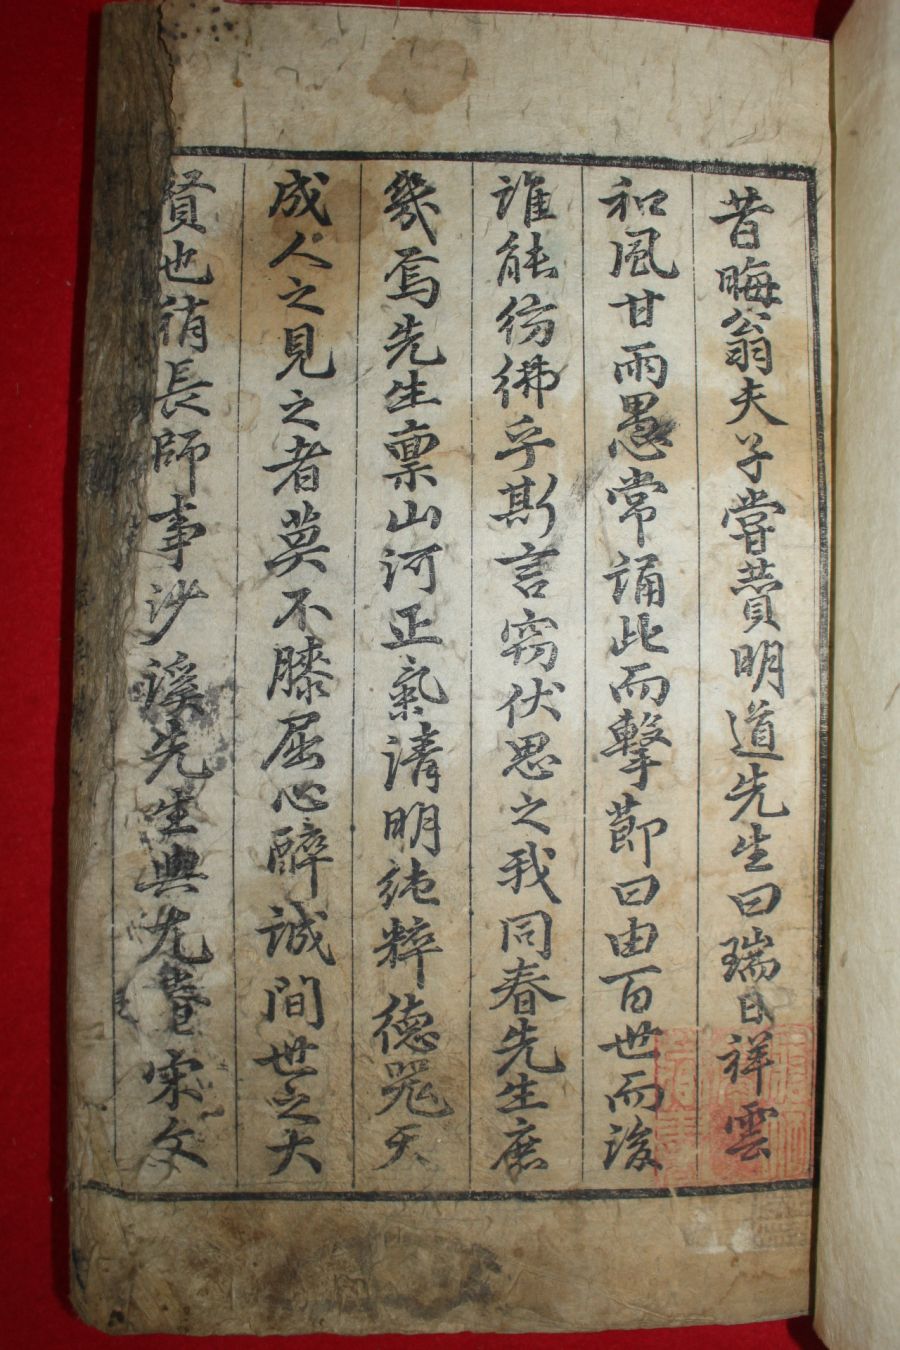 昔晦翁夫子嘗賛明道先生曰瑞日祥雲
和風甘雨愚常誦此而擊節曰由百世而後
誰能彷彿乎斯言窃伏思之我同春先生庶
幾焉先生禀山河正氣清明純粹德器天
成人之見之者莫不膝屈心醉誠間世之大
賢也稍長師事沙溪先生與尤菴宋文